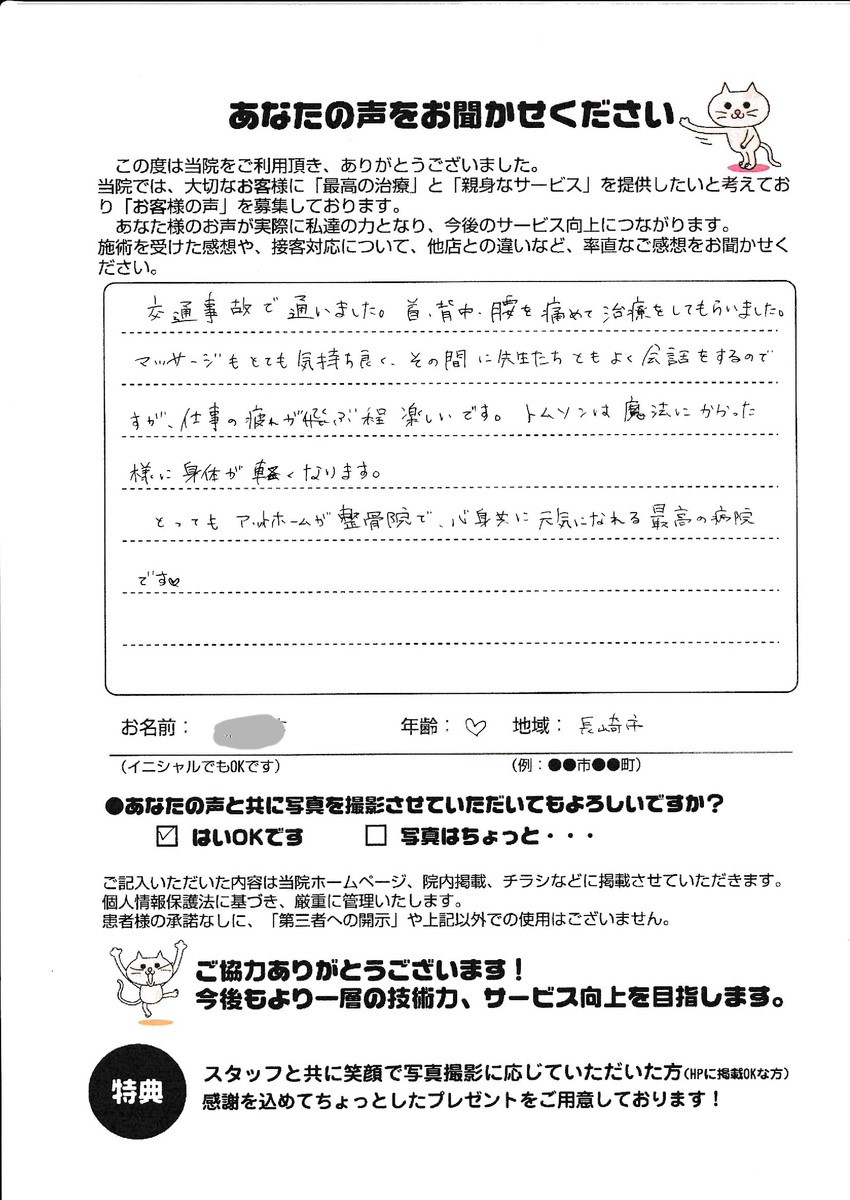 あなたの声をお聞かせください
この度は当院をご利用頂き、ありがとうございました。
当院では、大切なお客様に「最高の治療」と「親身なサービス」を提供したいと考えてお
り「お客様の声」を募集しております。
あなた様のお声が実際に私達の力となり、今後のサービス向上につながります。
施術を受けた感想や、接客対応について、他店との違いなど、率直なご感想をお聞かせく
ださい。
交通事故で通いました。首、背中、腰を痛めて治療をしてもらいました。
マッサージもとても気持ち良く、その間に先生たちともよく会話をするので
すが、仕事の疲れが飛ぶ程楽しいです。トムソンは魔法にかかった
様に身体が軽くなります。
とってもアットホームが整骨院で、心身共に元気になれる最高の病院
です♡
お名前： 年齢：♡ 地域：長崎市
（イニシャルでもOKです） （例：●●市●●町）
●あなたの声と共に写真を撮影させていただいてもよろしいですか？
☑ はいOKです □ 写真はちょっと・・・
ご記入いただいた内容は当院ホームページ、院内掲載、チラシなどに掲載させていただきます。
個人情報保護法に基づき、厳重に管理いたします。
患者様の承諾なしに、「第三者への開示」や上記以外での使用はございません。
ご協力ありがとうございます！
今後もより一層の技術力、サービス向上を目指します。
特典
スタッフと共に笑顔で写真撮影に応じていただいた方（HPに掲載OKな方）
感謝を込めてちょっとしたプレゼントをご用意しております！